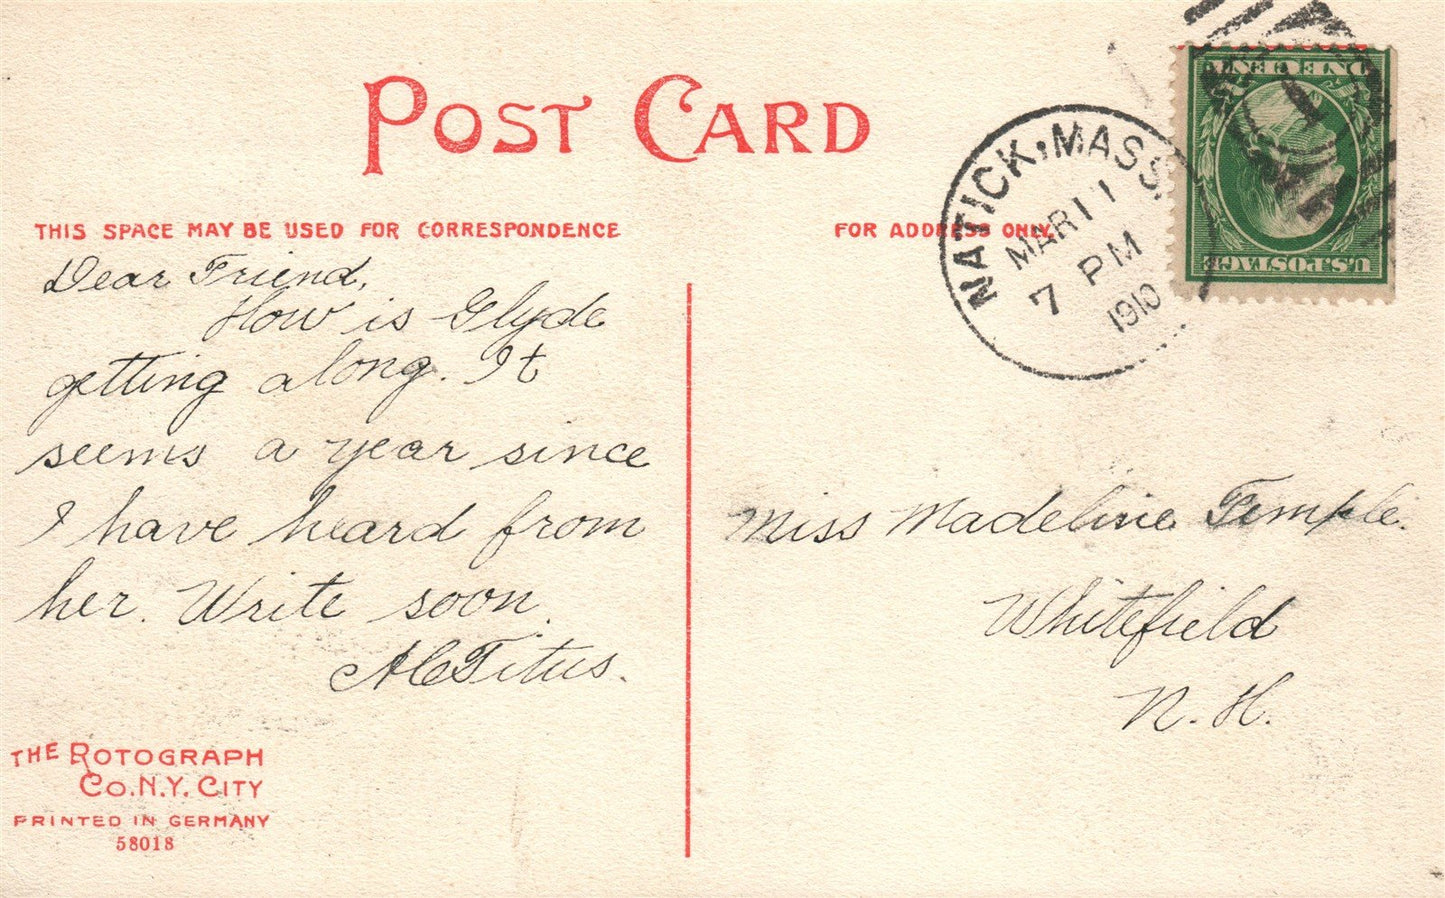 POST CARD
THIS SPACE MAY BE USED FOR CORRESPONDENCE
FOR ADDRESS ONLY.
NATICK, MASS.
MAR 11
7 PM
1910
ONE CENT
1
U.S. POSTAGE
Dear Friend,
How is Clyde
getting along. It
seems a year since
I have heard from
her. Write soon.
Titus.
Miss Madeline Temple.
Whitefield
N. H.
THE ROTOGRAPH
CO. N.Y. CITY
PRINTED IN GERMANY
58018